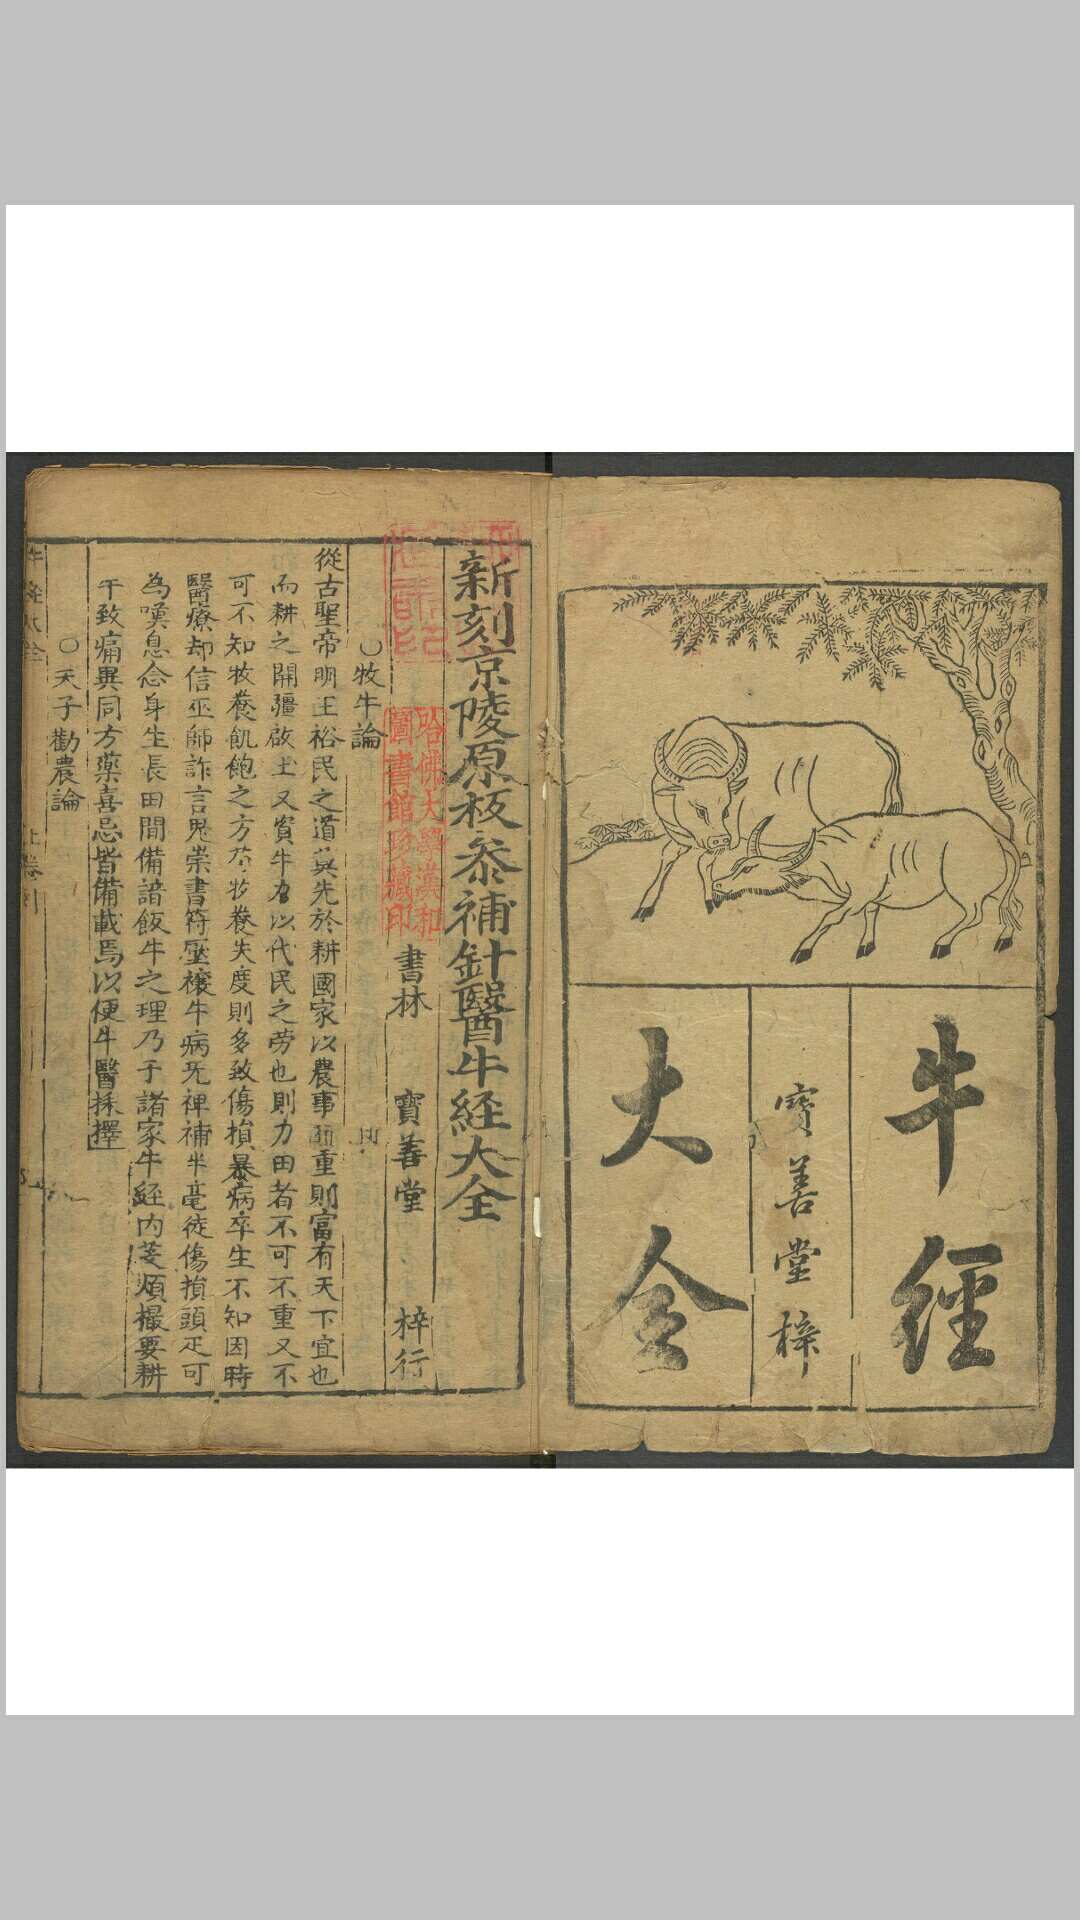 牛經
寶善堂梓
大全
新刻京陵原板參補針醫牛経大全
書林 寶善堂 梓行
哈佛大學漢和圖書館珍藏印
○牧牛論
從古聖帝明王裕民之道莫先於耕國家以農事爲重則富有天下宜也
而耕之開疆啟土又資牛力以代民之劳也則力田者不可不重又不
可不知牧養飢飽之方苐牧養失度則多致傷損暴病卒生不知因時
醫療却信巫師詐言鬼祟書符壓禳牛病旡裨補半毫徒傷損頭疋可
為嘆息念身生長田間備諳飯牛之理乃于諸家牛経内芟煩撮要耕
干致病異同方藥喜忌皆備載焉以便牛醫採擇
○天子勸農論
上卷